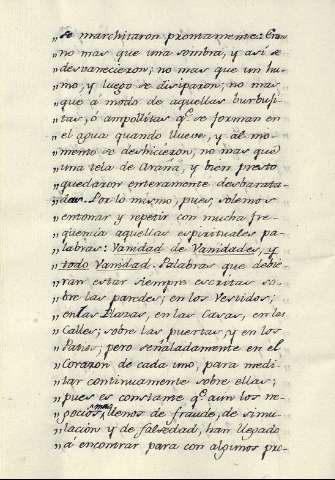 „se marchitaron prontamente: Eran
„no mas que una sombra, y así se
„desvanecieron; no mas que un hu-
„mo, y luego se disiparon; no mas
„que á modo de aquellas burbuji-
„tas, ó ampollitas q.e se forman en
„el agua quando llueve, y al mo-
„mento se deshicieron; no mas que
„una tela de Araña, y bien presto
„quedaron enteramente desbarata-
„das. Por lo mismo, pues, solemos
„entonar y repetir con mucha fre-
„qüencia aquellas espirituales pa-
„labras: Vanidad de Vanidades, y
„todo Vanidad. Palabras que debie-
„ran estar siempre escritas so-
„bre las paredes; en los Vestidos;
„en las Plazas, en las Casas, en las
„Calles; sobre las puertas, y en los
„Patios; pero señaladamente en el
„Corazon de cada uno, para medi-
„tar continuamente sobre ellas;
„pues es constante q.e aun los ne-
„gocios llenos de fraude, de simu-
„lación y de falsedad, han llegado
„á encontrar para con algunos pro-